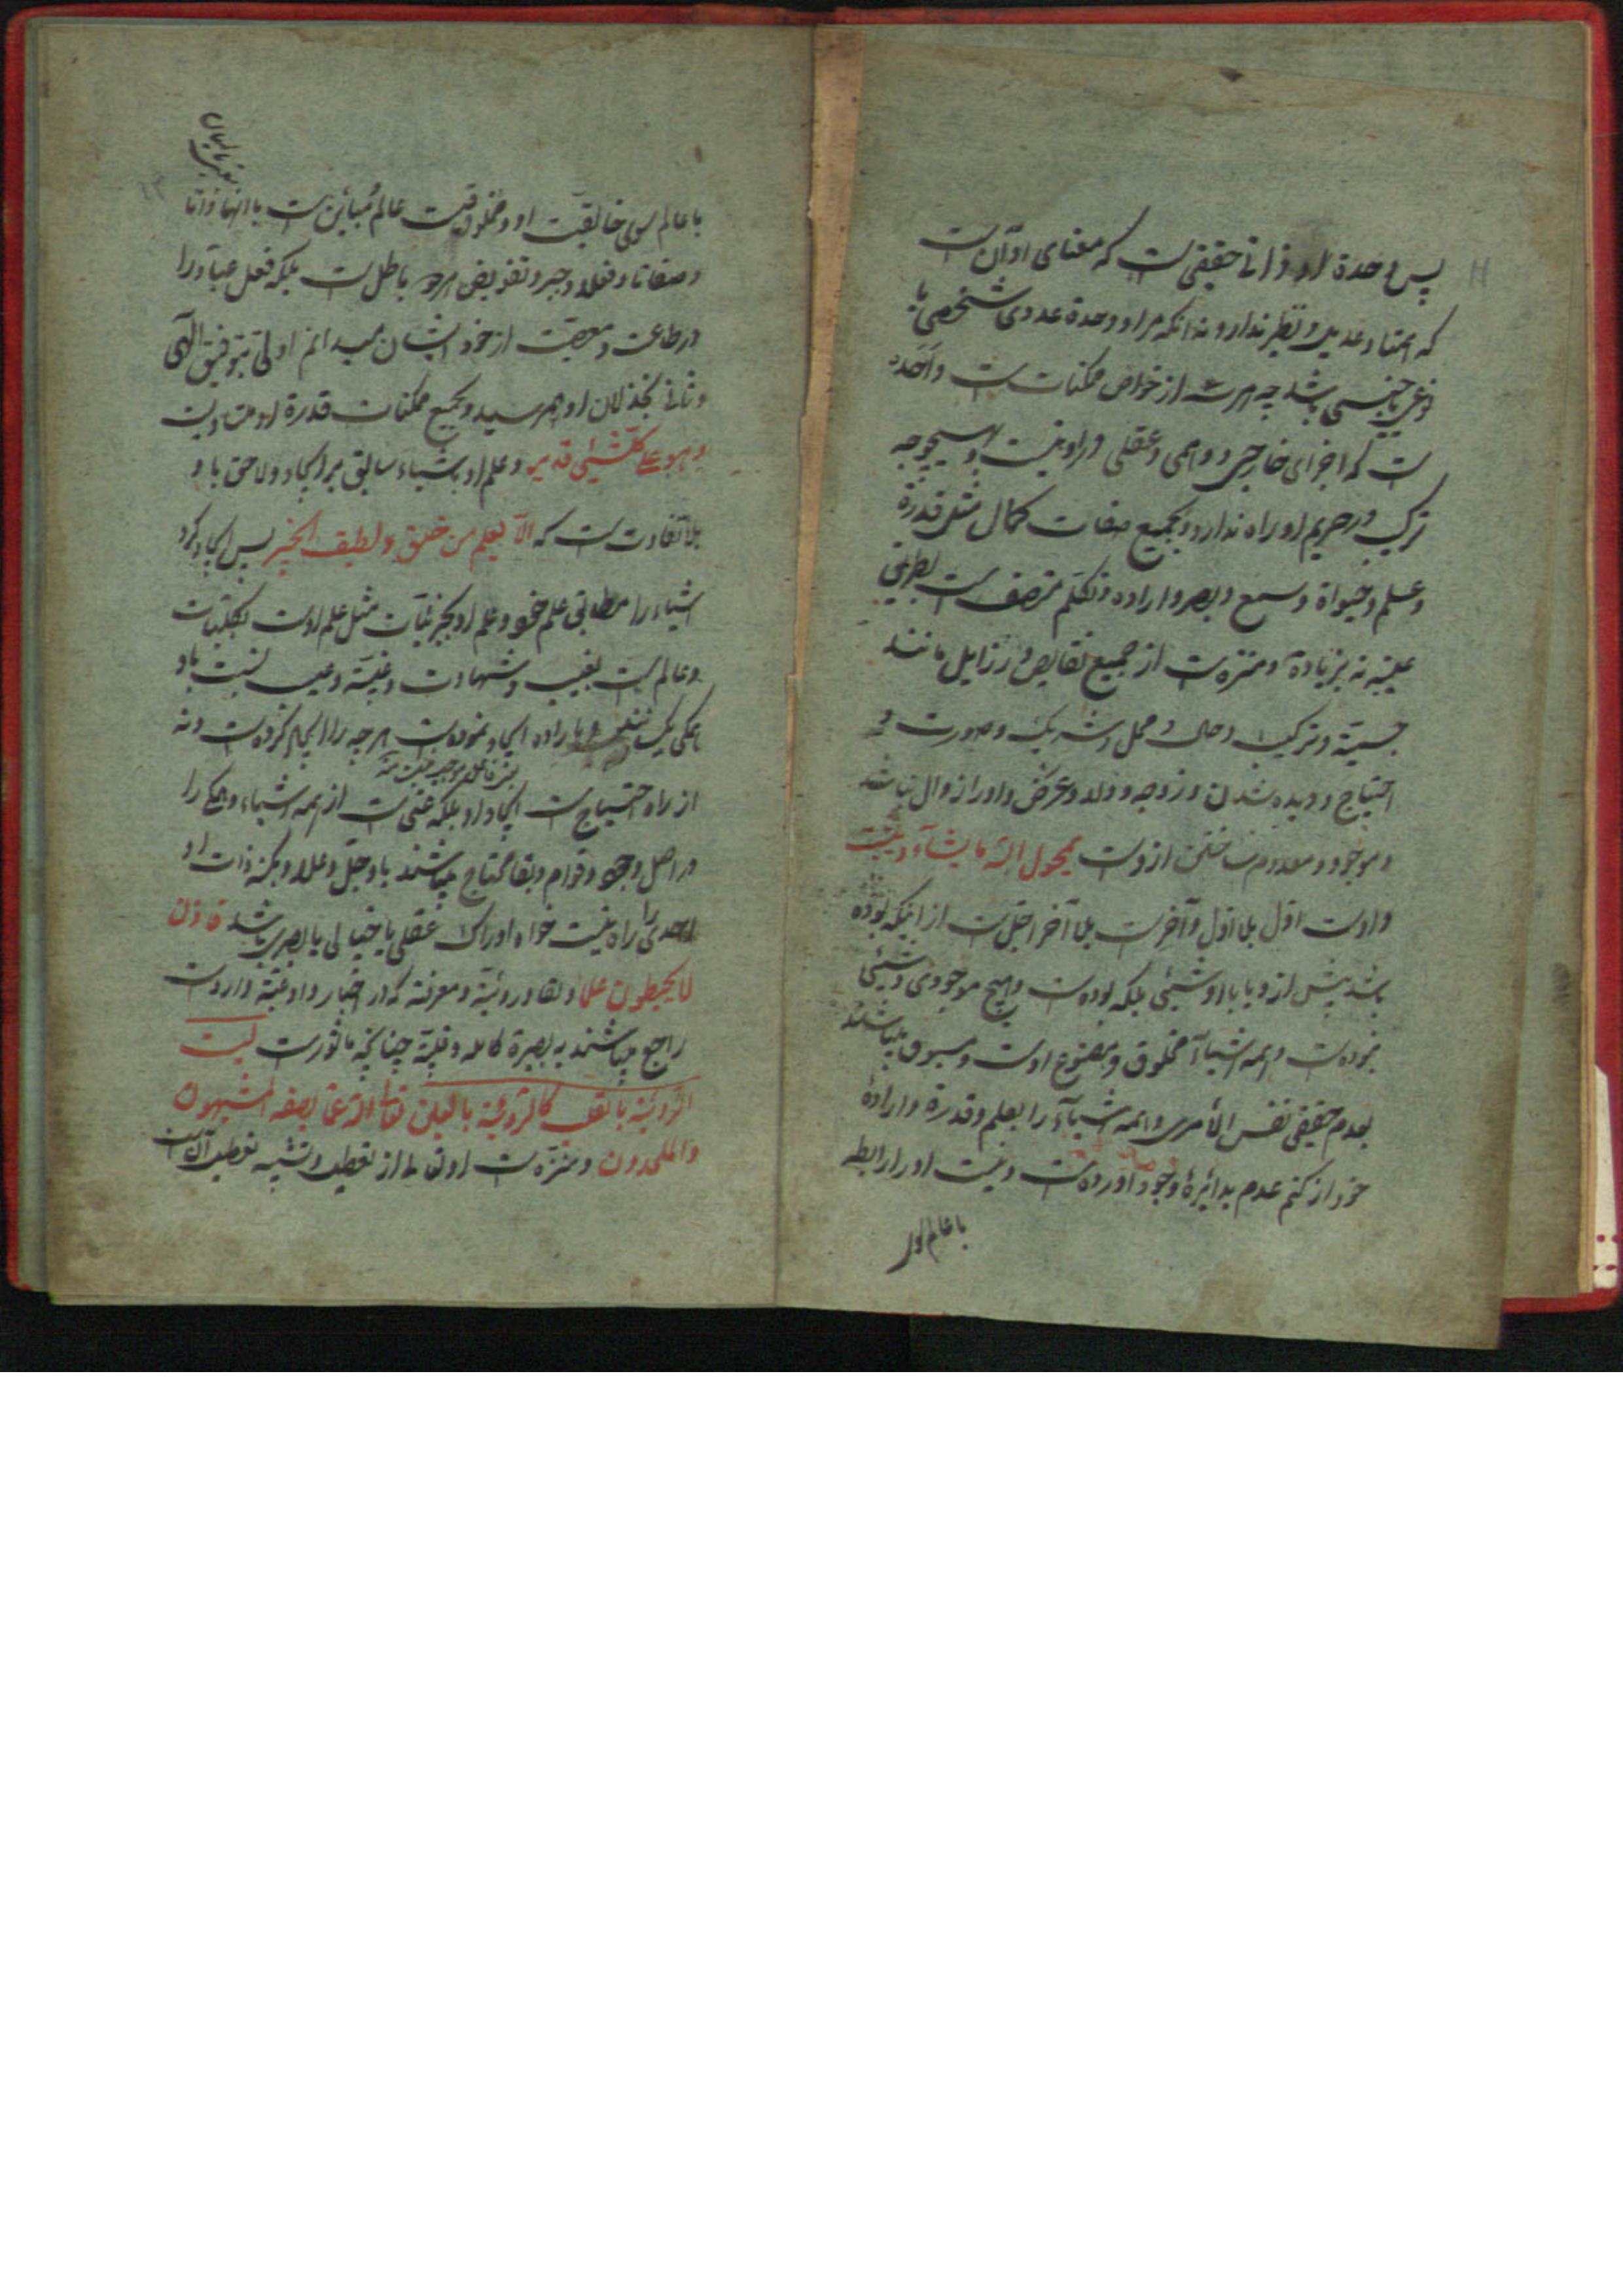 پس وحدة او ذاتی حقیقی است که معنای او آن است
که همتا و عدیل و نظیر ندارد نه آنکه مراد وحدة عددی شخصی یا
نوعی یا جنسی باشد چه هر سه از خواص ممکنات است و احد
است که اجزای خارجی و وهمی و عقلی در او نیست و بهیچوجه
ترکیب در حریم او راه ندارد و بجمیع صفات کمال مثل قدرة
و علم و حیواة و سمع و بصر و اراده و تکلم متصف است بطریق
عینیه نه بزیادة و منزه است از جمیع نقایص و رزایل مانند
جسمیة و ترکیب و حال و محل و شریک و صورت و
احتیاج و دیده شدن و زوجه و ولد و عرض و او را زوال نباشد
و موجود و معدوم ساختن ازوست یمحو الله ما یشآء و یثبت
و اوست اول بلا اول و آخر است بلا آخر اجل است از اینکه بوده
باشد پیش ازو یا با او شیئی بلکه بوده است و هیچ موجودی و شیئی
نبوده است و همه اشیاء مخلوق و مصنوع اوست و مسبوق میباشند
بعدم حقیقی نفس الأمری و همه اشیآء را بعلم و قدرة و ارادهٔ
خود از کتم عدم بدائرهٔ وجود آورده است و نیست او را رابطه
با عالم سوی
با عالم سوی خالقیت او و مخلوقیت عالم مباین است با آنها ذاتا
و صفاتا و فعلا و جبر و تفویض هر دو باطل است بلکه فعل عباد را
در طاعت و معصیت از خود ایشان میدانم اولی بتوفیق الهی
و ثانی بخذلان او بهم رسیده و بجمیع ممکنات قدرة او متساویست
و هو علی کلشئی قدیر و علم او باشیاء سابق بر ایجاد و لاحق باو
بلا تفاوت است که الا یعلم من خلق و لطیف الخبیر پس ایجاد کرد
اشیاء را مطابق علم خود و علم او بجزئیات مثل علم اوست بکلیات
و عالم است بغیب و شهادت و غیبة و عیب نسبت باو
باراده ایجاد نموده است هر چه را ایجاد کرده است و نه
از راه احتیاج است ایجاد او بلکه غنی است از همه اشیاء و همگی را
در اصل وجود و قوام و بقا محتاج میباشند باو جل و علا و بکنه ذات او
احدی را راه نیست خواه ادراک عقلی یا خیالی یا بصری باشد
لا یحیطون علما و لقا و رؤیة و معرفة که در اخبار و ادعیة وارد است
راجع میباشند به بصیرة کامله و قلبیة چنانکه ماثور است لیست
الرؤیة بالقلب کالرؤیة بالعین تعالی الله عما یصفه المشبهون
و الملحدون و منزه است او تعالی از تعطیل و تشبیه تعطیل آنست